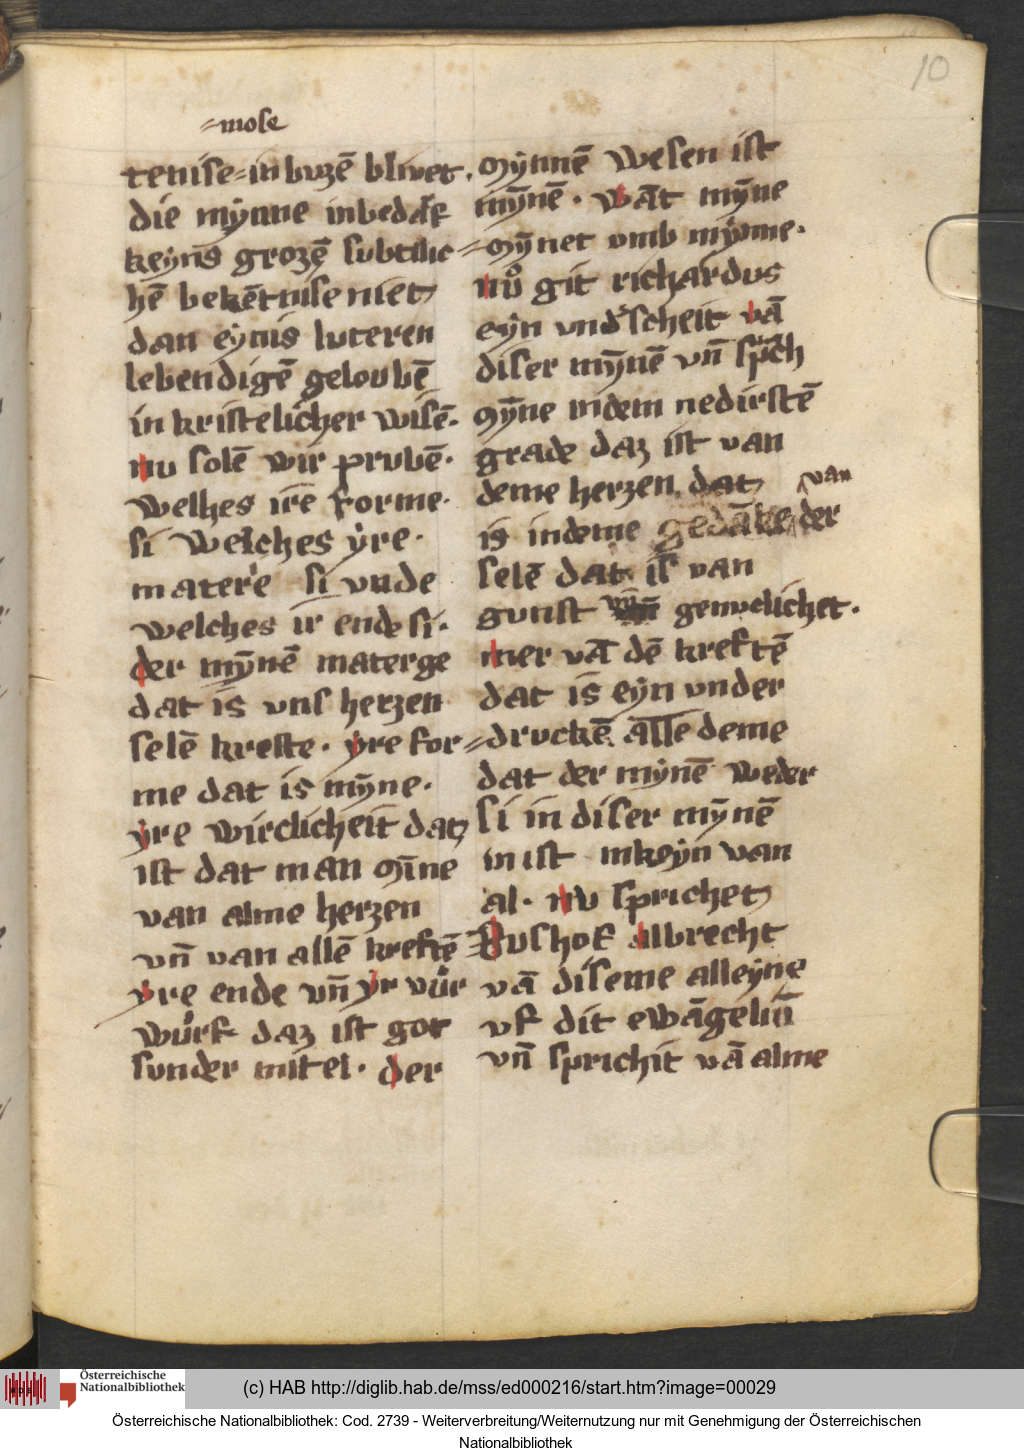 10
mose
tenise in buzē blivet.
die mẏnne inbedarf
keynis grozē subtilic
hē bekētnise niet
dan eynis luteren
lebendigē geloubē
in kristelicher wisē.
nu solē wir pruvē.
welhes ire forme.
si welches ẏre.
matere si vnde
welches ir ende si.
der mẏnē materge
dat is vns herzen
selē krefte. ẏre for
me dat is mẏne.
ẏre wirclicheit daz
ist dat man mīne
van alme herzen
vn̄ van allē kreftē
ẏre ende vn̄ ẏr vůr
wůrf daz ist got
sunder mitel. der
mẏnnē wesen ist
mẏnē. wāt mẏne
mẏnet vmb mẏnne.
nů git richardus
eẏn vnd'scheit vā
diser mẏnē vn̄ sp̄ch
mẏne in dem nedirstē
grade daz ist van
deme herzen. dat van
is in deme gedāke der
selē dat is van
gunst genuclichet.
mer vā dē kreftē
dat is eẏn vnder
druckē alle deme
dat der mẏnē weder
si in diser mẏnē
in ist inkeẏn van
al. nu sprichet
Buschof albrecht
vā diseme alleẏne
vf dit ewāgeliū
vn̄ sprichit vā alme
Österreichische
Nationalbibliothek
(c) HAB http://diglib.hab.de/mss/ed000216/start.htm?image=00029
Österreichische Nationalbibliothek: Cod. 2739 - Weiterverbreitung/Weiternutzung nur mit Genehmigung der Österreichischen
Nationalbibliothek